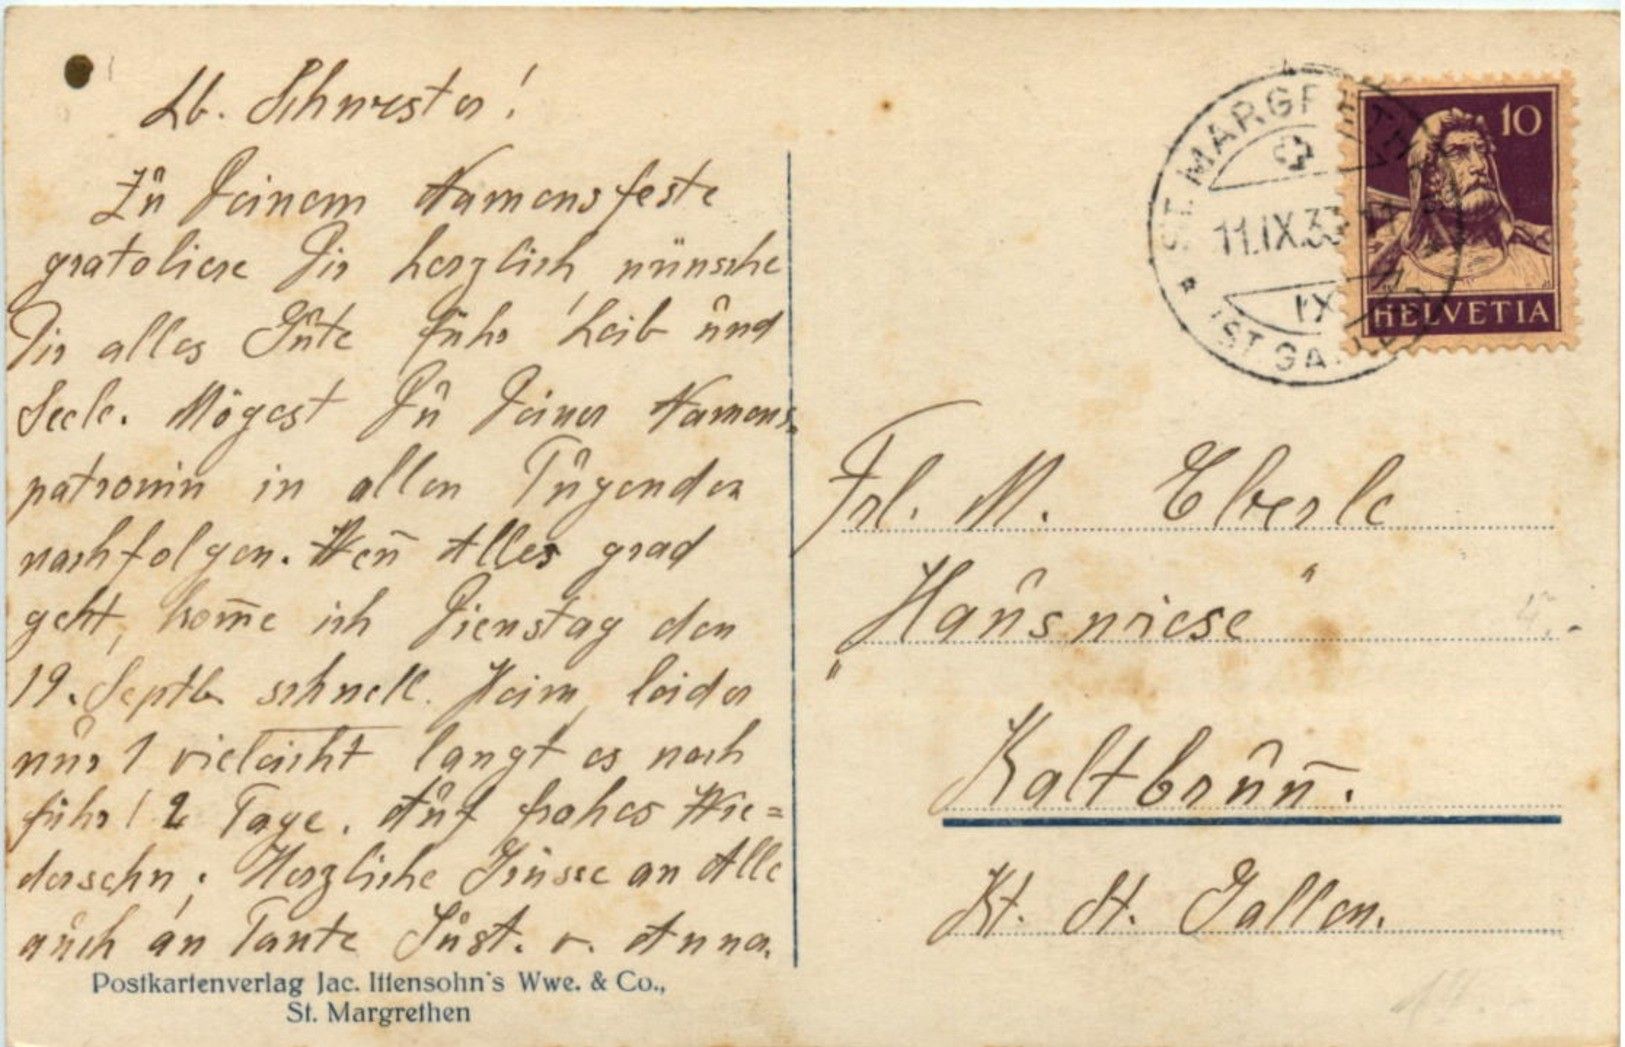 Lb. Schwester!
Zu Deinem Namensfeste
gratoliere Dir herzlich wünsche
Dir alles Gute führ Leib und
Seele. Mögest Du Deiner Namens-
patronin in allen Tugenden
nachfolgen. Wen̄ Alles grad
geht, kom̄e ich Dienstag den
19. Septb. schnell Heim, leider
nur 1 vieleicht langt es noch
führ 2 Tage. Auf frohes Wie=
dersehn; Herzliche Grüsse an Alle
auch an Tante Gust. v. Anna.
Postkartenverlag Jac. Ittensohn's Wwe. & Co.,
St. Margrethen
ST. MARGRETHEN
11.IX.33
IX
(ST. GALLEN)
10
HELVETIA
Frl. M. Eberle
"Hauswiese"
Kaltbrun̄.
Kt. St. Gallen.